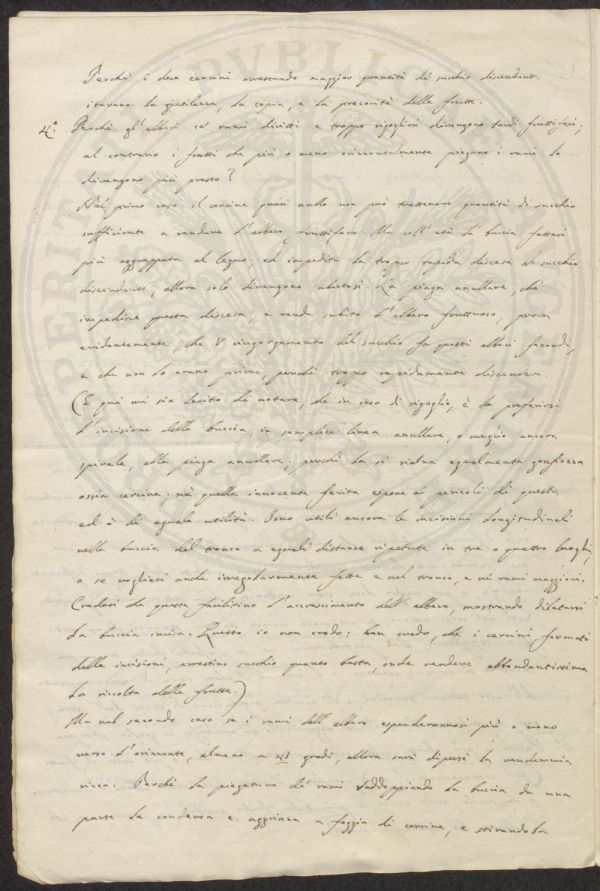 Perchè i due cercini arrestando maggior quantità di succhio discendente
itarano la gentilezza, la copia, e la precocità delle frutte.
4.° Perchè gl'alberi co' rami diritti e troppo rigogliosi divengono tardi fruttiferi;
al contrario i frutti che più o meno orizzontalmente piegano i rami lo
divengono più presto?
Nel primo caso il cercine quasi nullo non può trattenere quantità di succhio
sufficiente a rendere l'albero fruttifero. Ma coll'età la buccia fattasi
più aggrappata al legno, ed impedita la troppo rapida discesa al succhio
discendente, allora solo divengono ubertosi. La piaga annullare, che
impedisce questa discesa, e rende subito l'albero fruttuoso, prova
evidentemente, che l'ringorgamento del succhio fa questi alberi fecondi,
e che non lo erano prima, perchè troppo rapidamente discendeva.
(E qui mi sia lecito di notare, che in caso di rigoglio, è da preferirsi
l'incisione della buccia in semplice linea annullare, o meglio ancora
spirale, alla piaga annullare; perchè la si rialza egualmente gonfiezza
ossia cercine: nè quella innocente ferita espone ai pericoli di questa,
ed è di eguale utilità. Sono utili ancora le incisioni longitudinali
nella buccia del tronco a eguali distanze ripetute in tre o quattro luoghi,
o se vogliasi anche irregolarmente fatte e nel tronco, e nei rami maggiori.
Credesi che queste facilitino l'accrescimento dell'albero, mostrando dilatarsi
la buccia incisa. Questo io non credo: ben credo, che i cercini, formati
dalle incisioni, arrestino succhio quanto basta, onde rendere abbondantissima
la ricolta delle frutte.)
Ma nel secondo caso se i rami dell'albero espanderannosi più o meno
verso l'orizzonte, almeno a 45 gradi, allora sarà di già la vendemmia
ricca. Perchè la piegatura de' rami raddoppiando la buccia da una
parte la condensa e aggrinza a foggia di cercine, e stirando la